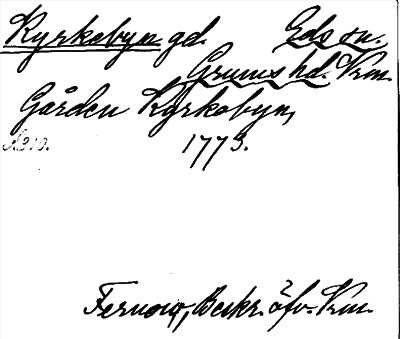 Kyrkobyn gd. Eds sn.
Grums hd. Vrm.
Gården Kyrkobyn,
1773.
Fernow, Beskr. öfv. Vrm.